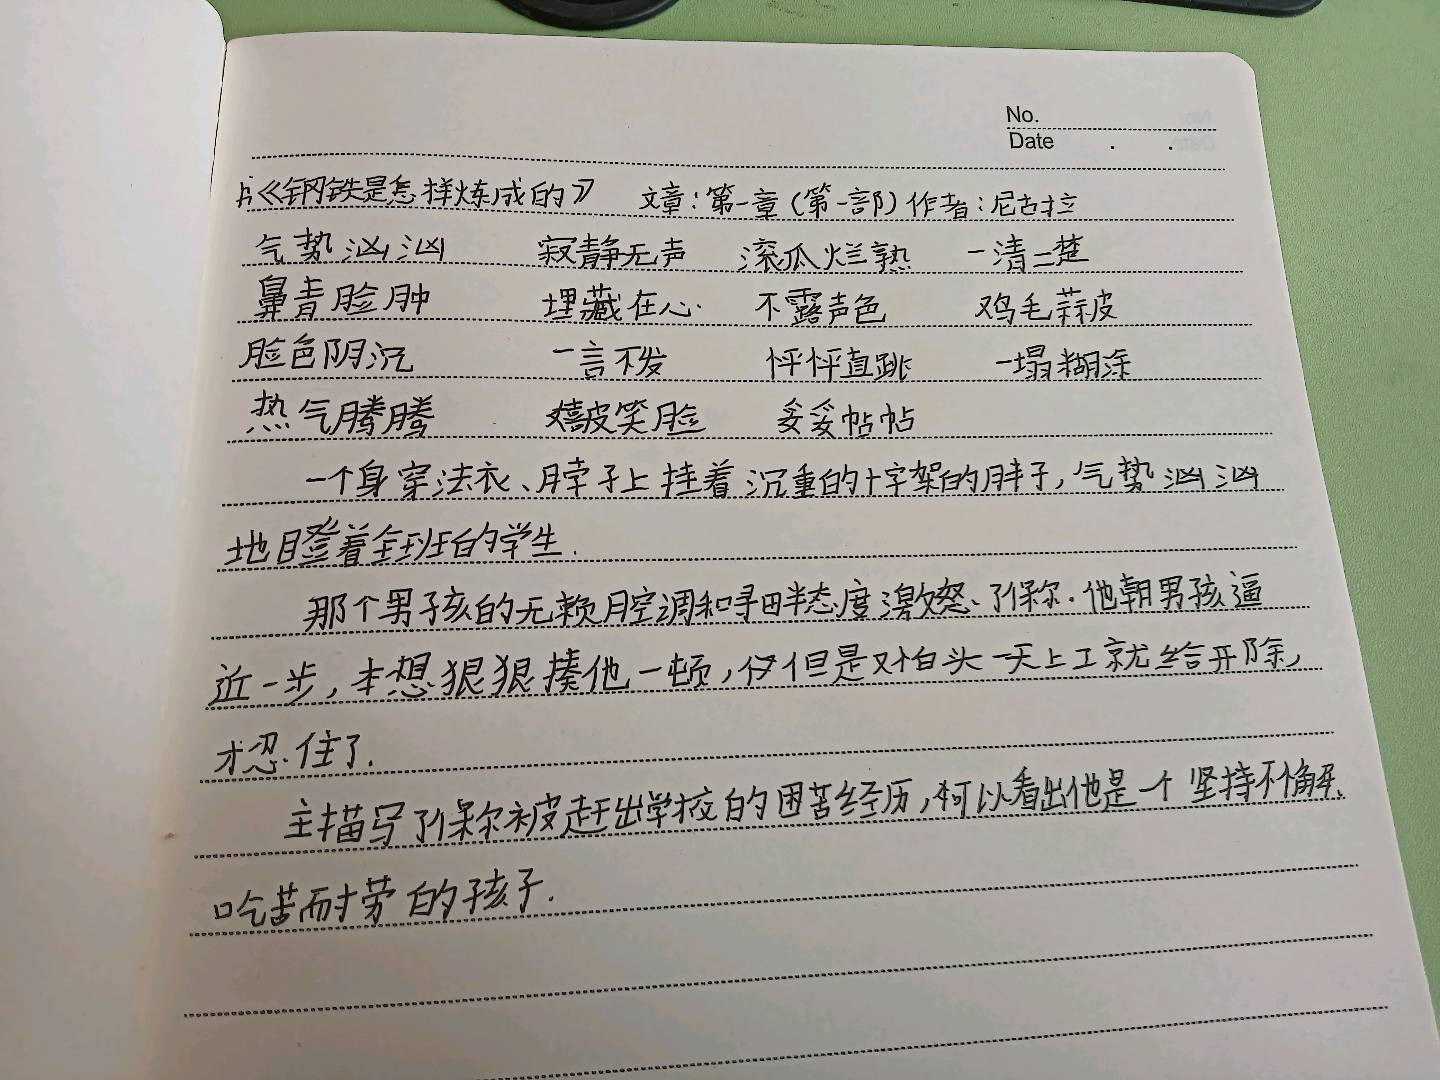 No.
Date . .
《钢铁是怎样炼成的》 文章:第一章(第一部)作者:尼古拉
气势汹汹 寂静无声 滚瓜烂熟 一清二楚
鼻青脸肿 埋藏在心 不露声色 鸡毛蒜皮
脸色阴沉 一言不发 怦怦直跳 一塌糊涂
热气腾腾 嬉皮笑脸 妥妥帖帖
一个身穿法衣、脖子上挂着沉重的十字架的胖子,气势汹汹
地瞪着全班的学生.
那个男孩的无赖腔调和寻畔态度激怒了保尔.他朝男孩逼
近一步,本想狠狠揍他一顿,但是对怕头一天上工就给开除,
才忍住了.
主描写了保尔被赶出学校的困苦经历,可以看出他是一个坚持不懈、
吃苦耐劳的孩子.